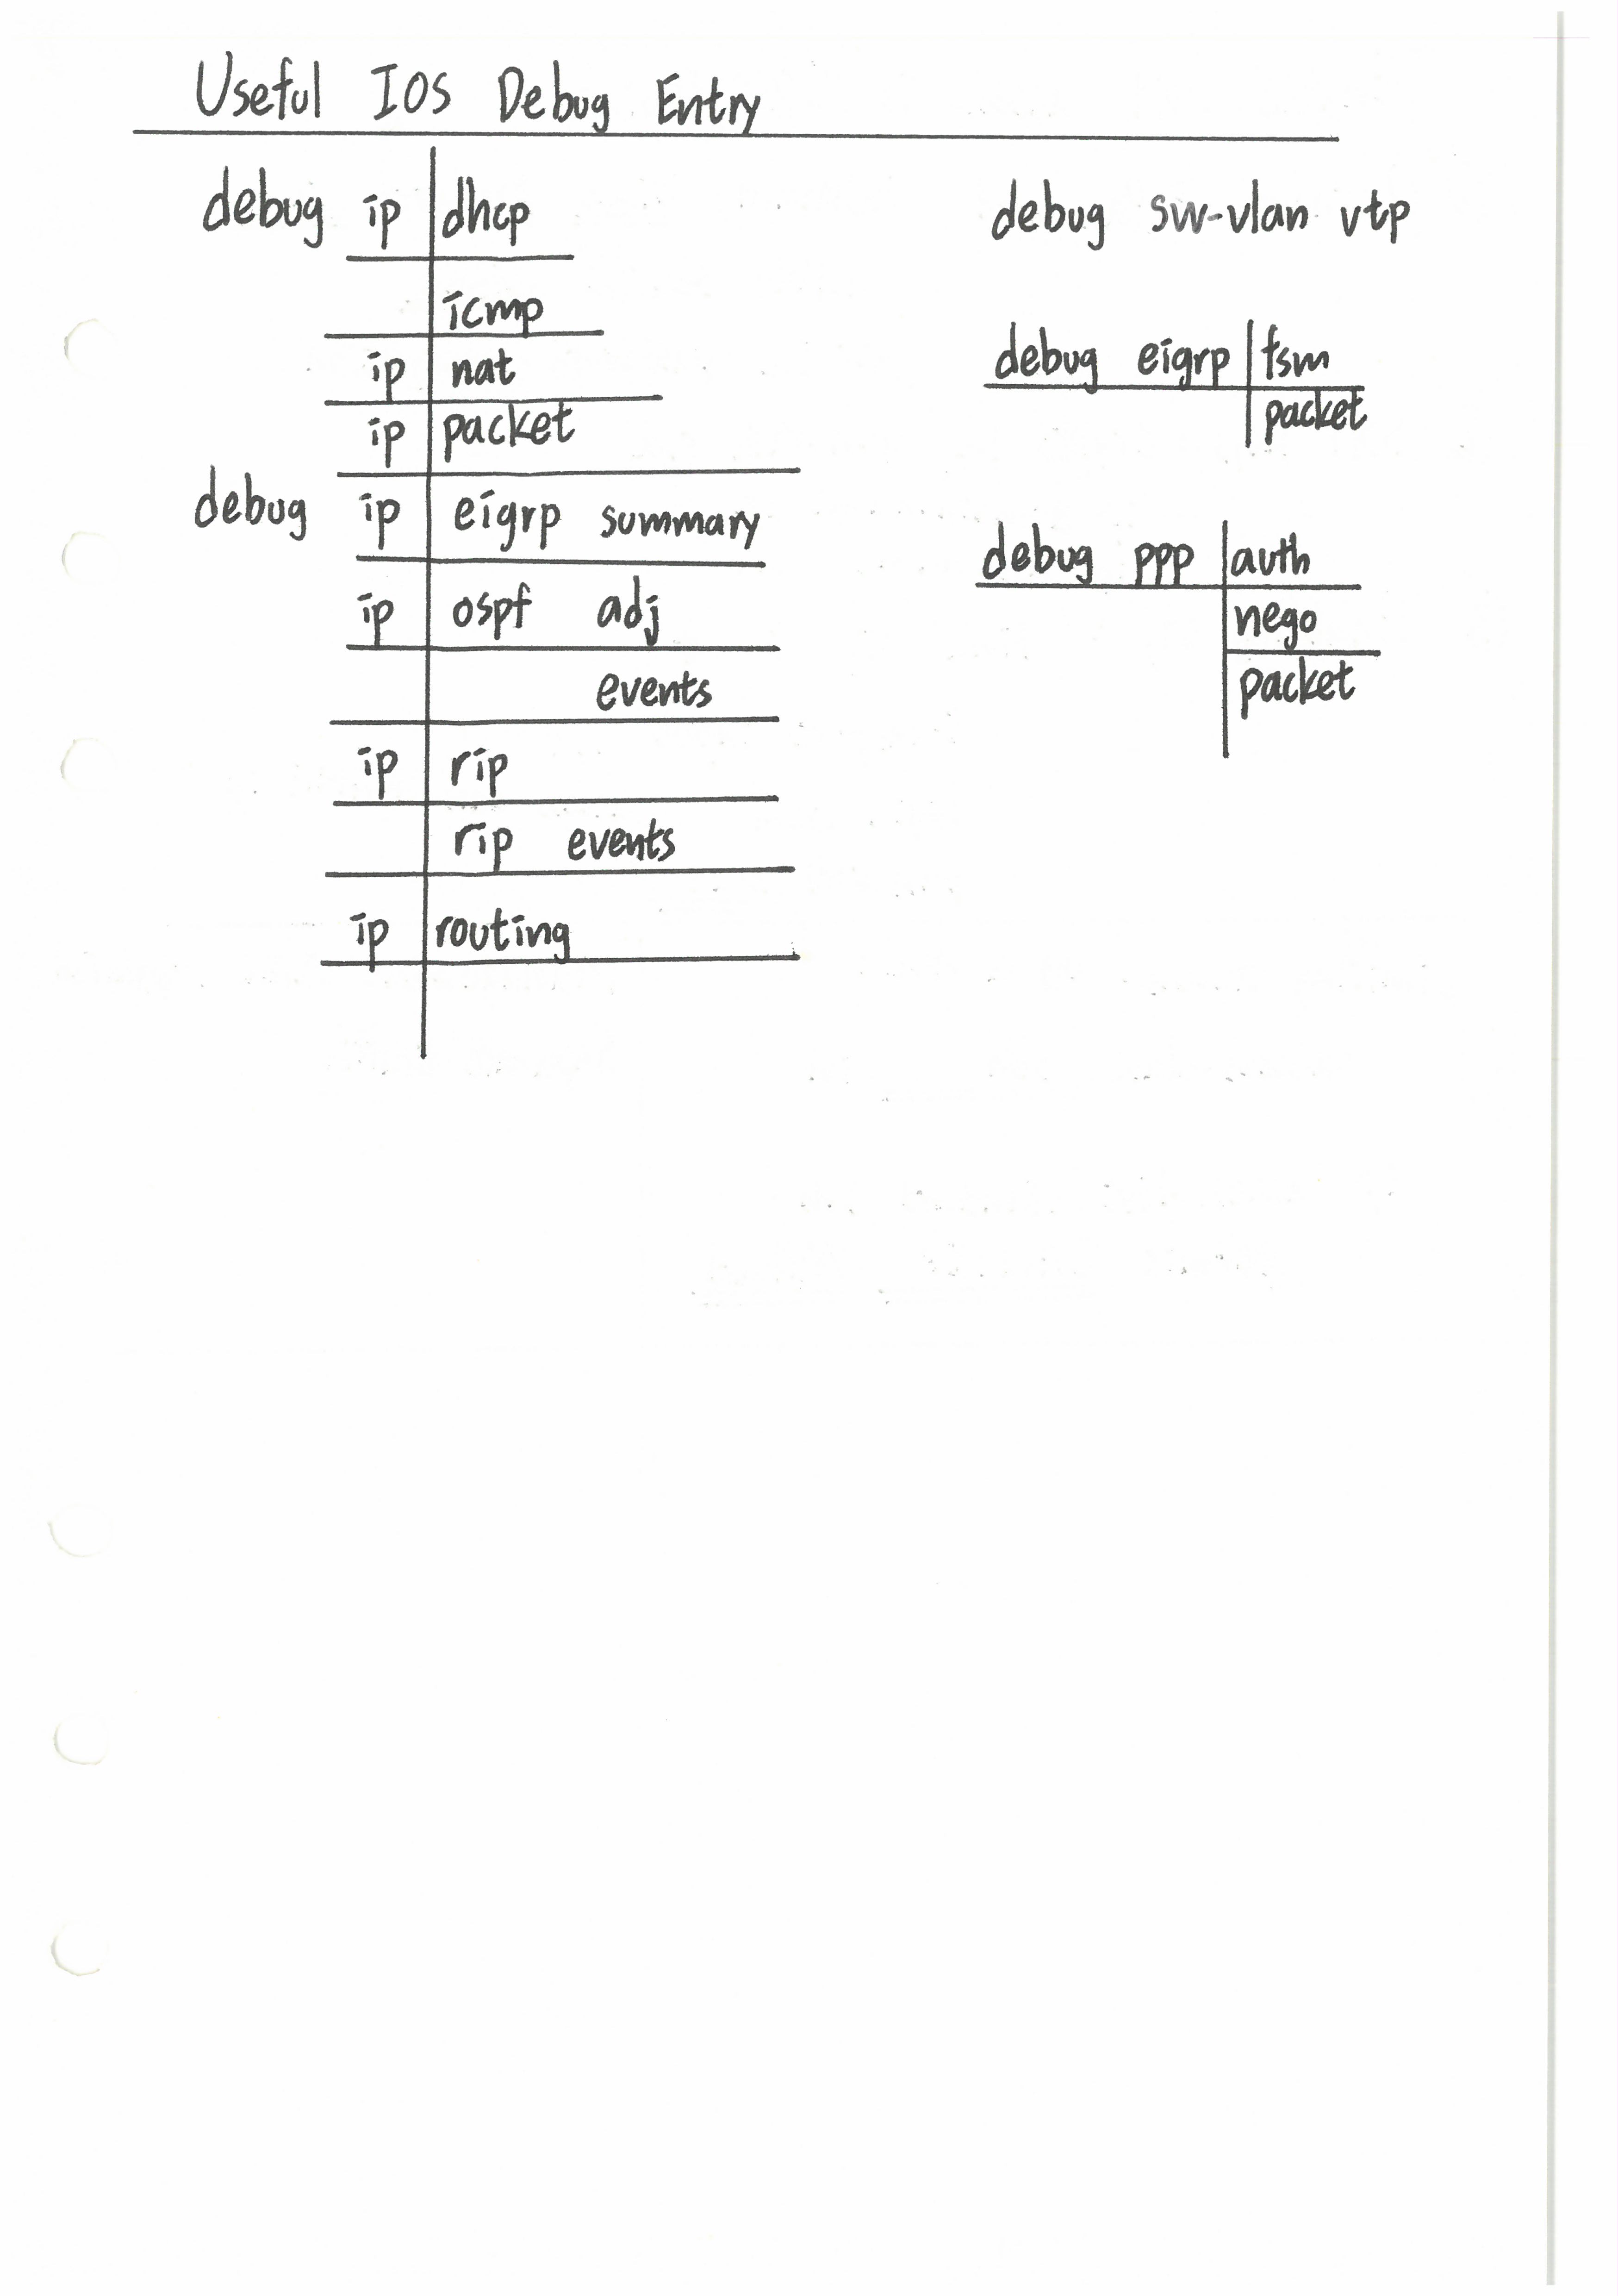 Useful IOS Debug Entry
debug ip dhcp
icmp
ip nat
ip packet
debug ip eigrp summary
ip ospf adj
events
ip rip
rip events
ip routing
debug sw-vlan vtp
debug eigrp fsm
packet
debug ppp auth
nego
packet